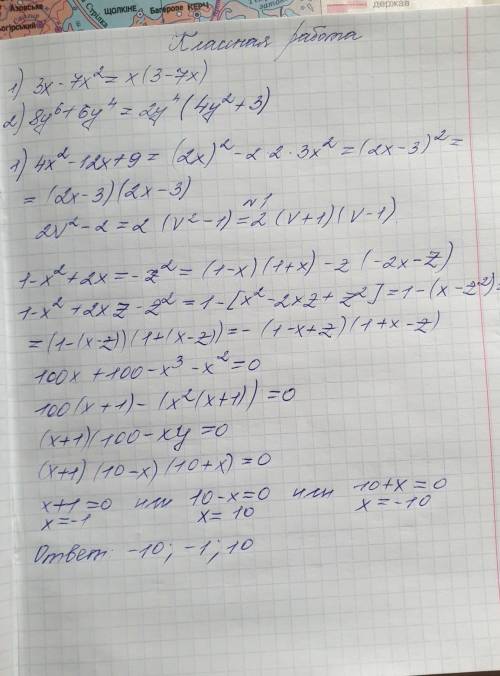 Азовське
Стрілка
ЩОЛКІНЕ
Багерове КЕРЧ
держав
Классная работа
1) 3x - 7x² = x(3-7x)
2) 8y⁶ + 6y⁴ = 2y⁴(4y² + 3)
1) 4x² - 12x + 9 = (2x)² - 2·2·3x² = (2x-3)² =
= (2x-3)(2x-3)
№1
2v² - 2 = 2(v² - 1) = 2(v+1)(v-1)
1-x² + 2x = -z² = (1-x)(1+x) - z(-2x-z)
1-x² + 2xz - z² = 1-[x² - 2xz + z²] = 1-(x-z²) =
= (1-(x-z))(1+(x-z)) = -(1-x+z)(1+x-z)
100x + 100 - x³ - x² = 0
100(x+1) - (x²(x+1)) = 0
(x+1)(100 - xy = 0
(x+1)(10-x)(10+x) = 0
x+1=0 или 10-x=0 или 10+x=0
x=-1 x=10 x=-10
Ответ: -10; -1; 10